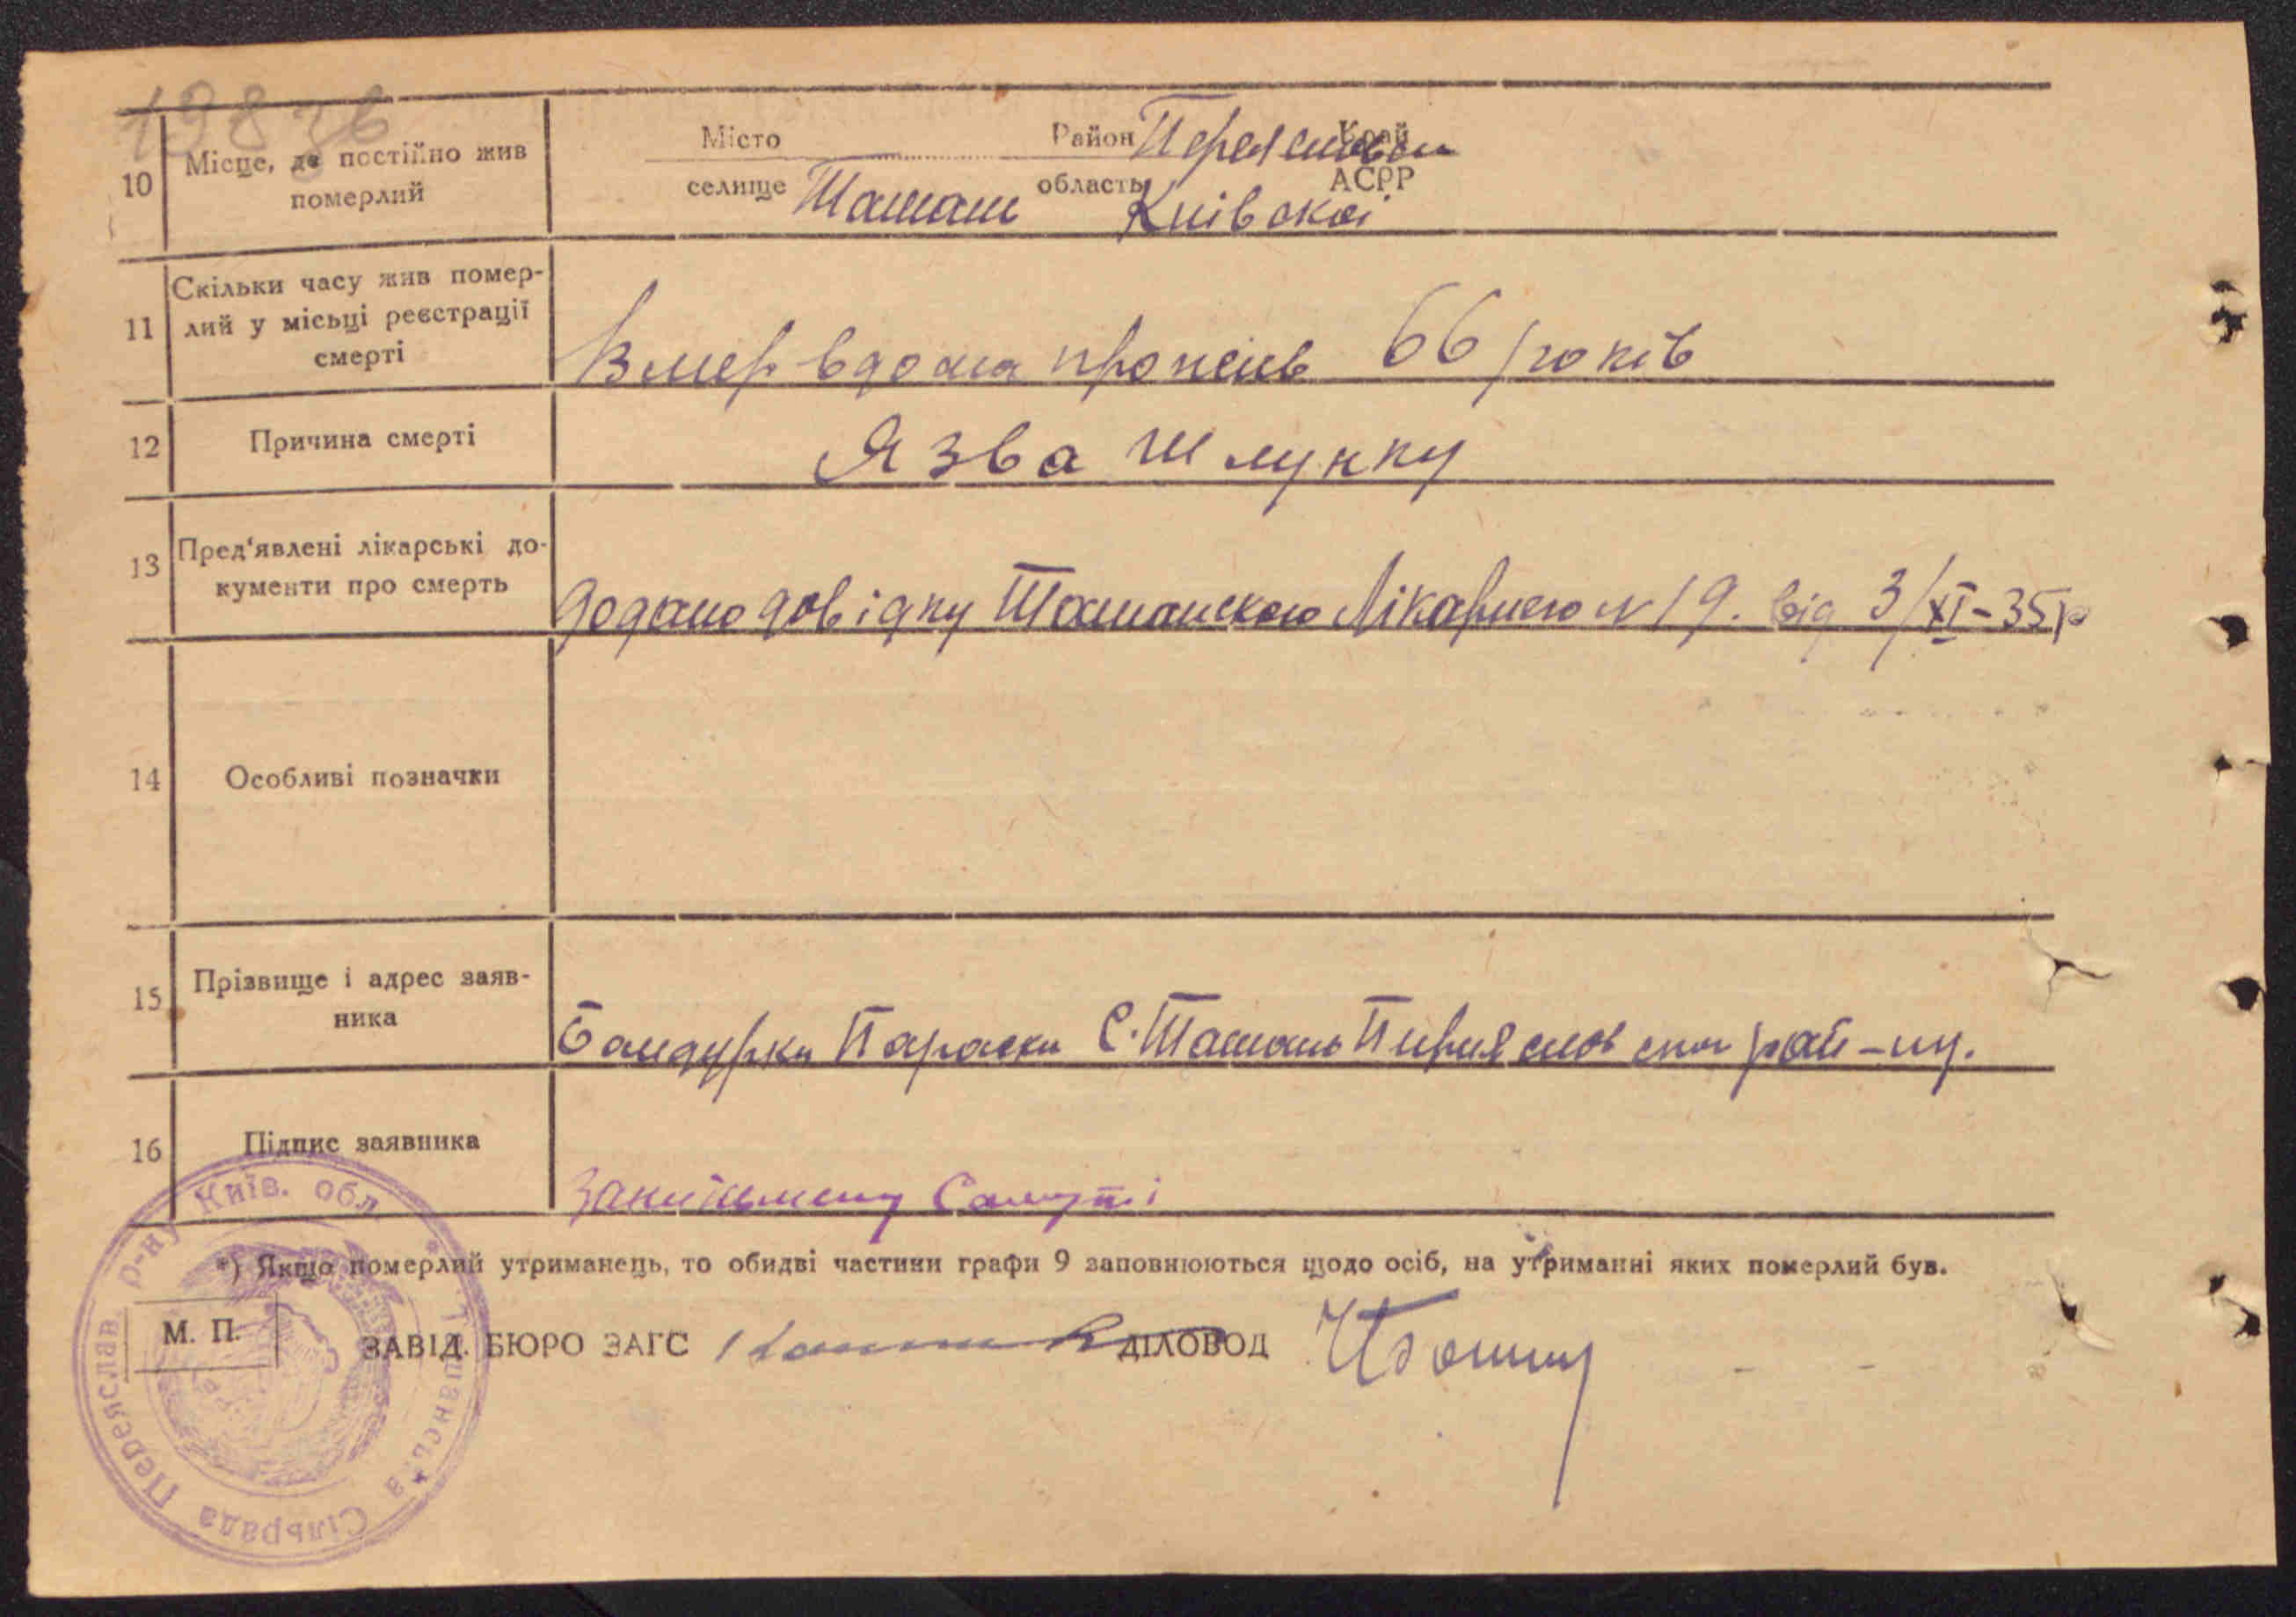 19836
10 Місце, де постійно жив померлий
Місто Район Переяславськ Край
селище Ташань область Київскоі АСРР
11 Скільки часу жив помер-
лий у місьці реєстрації
смерті
Вмер вдома прожив 66 років
12 Причина смерті Язва шлунку
13 Пред'явлені лікарські до-
кументи про смерть
Додано довідку Ташанскою Лікарнею №19. від 3/XI-35р
14 Особливі позначки
15 Прізвище і адрес заяв-
ника
Бандурки Параски С. Ташань рай-ну.
16 Підпис заявника
*) Якщо померлий утриманець, то обидві частини графи 9 заповнюються щодо осіб, на утриманні яких померлий був.
М. П. ЗАВІД. БЮРО ЗАГС ДІЛОВОД
Ташанська Сільрада Переяслав. р-ну Київ. обл.